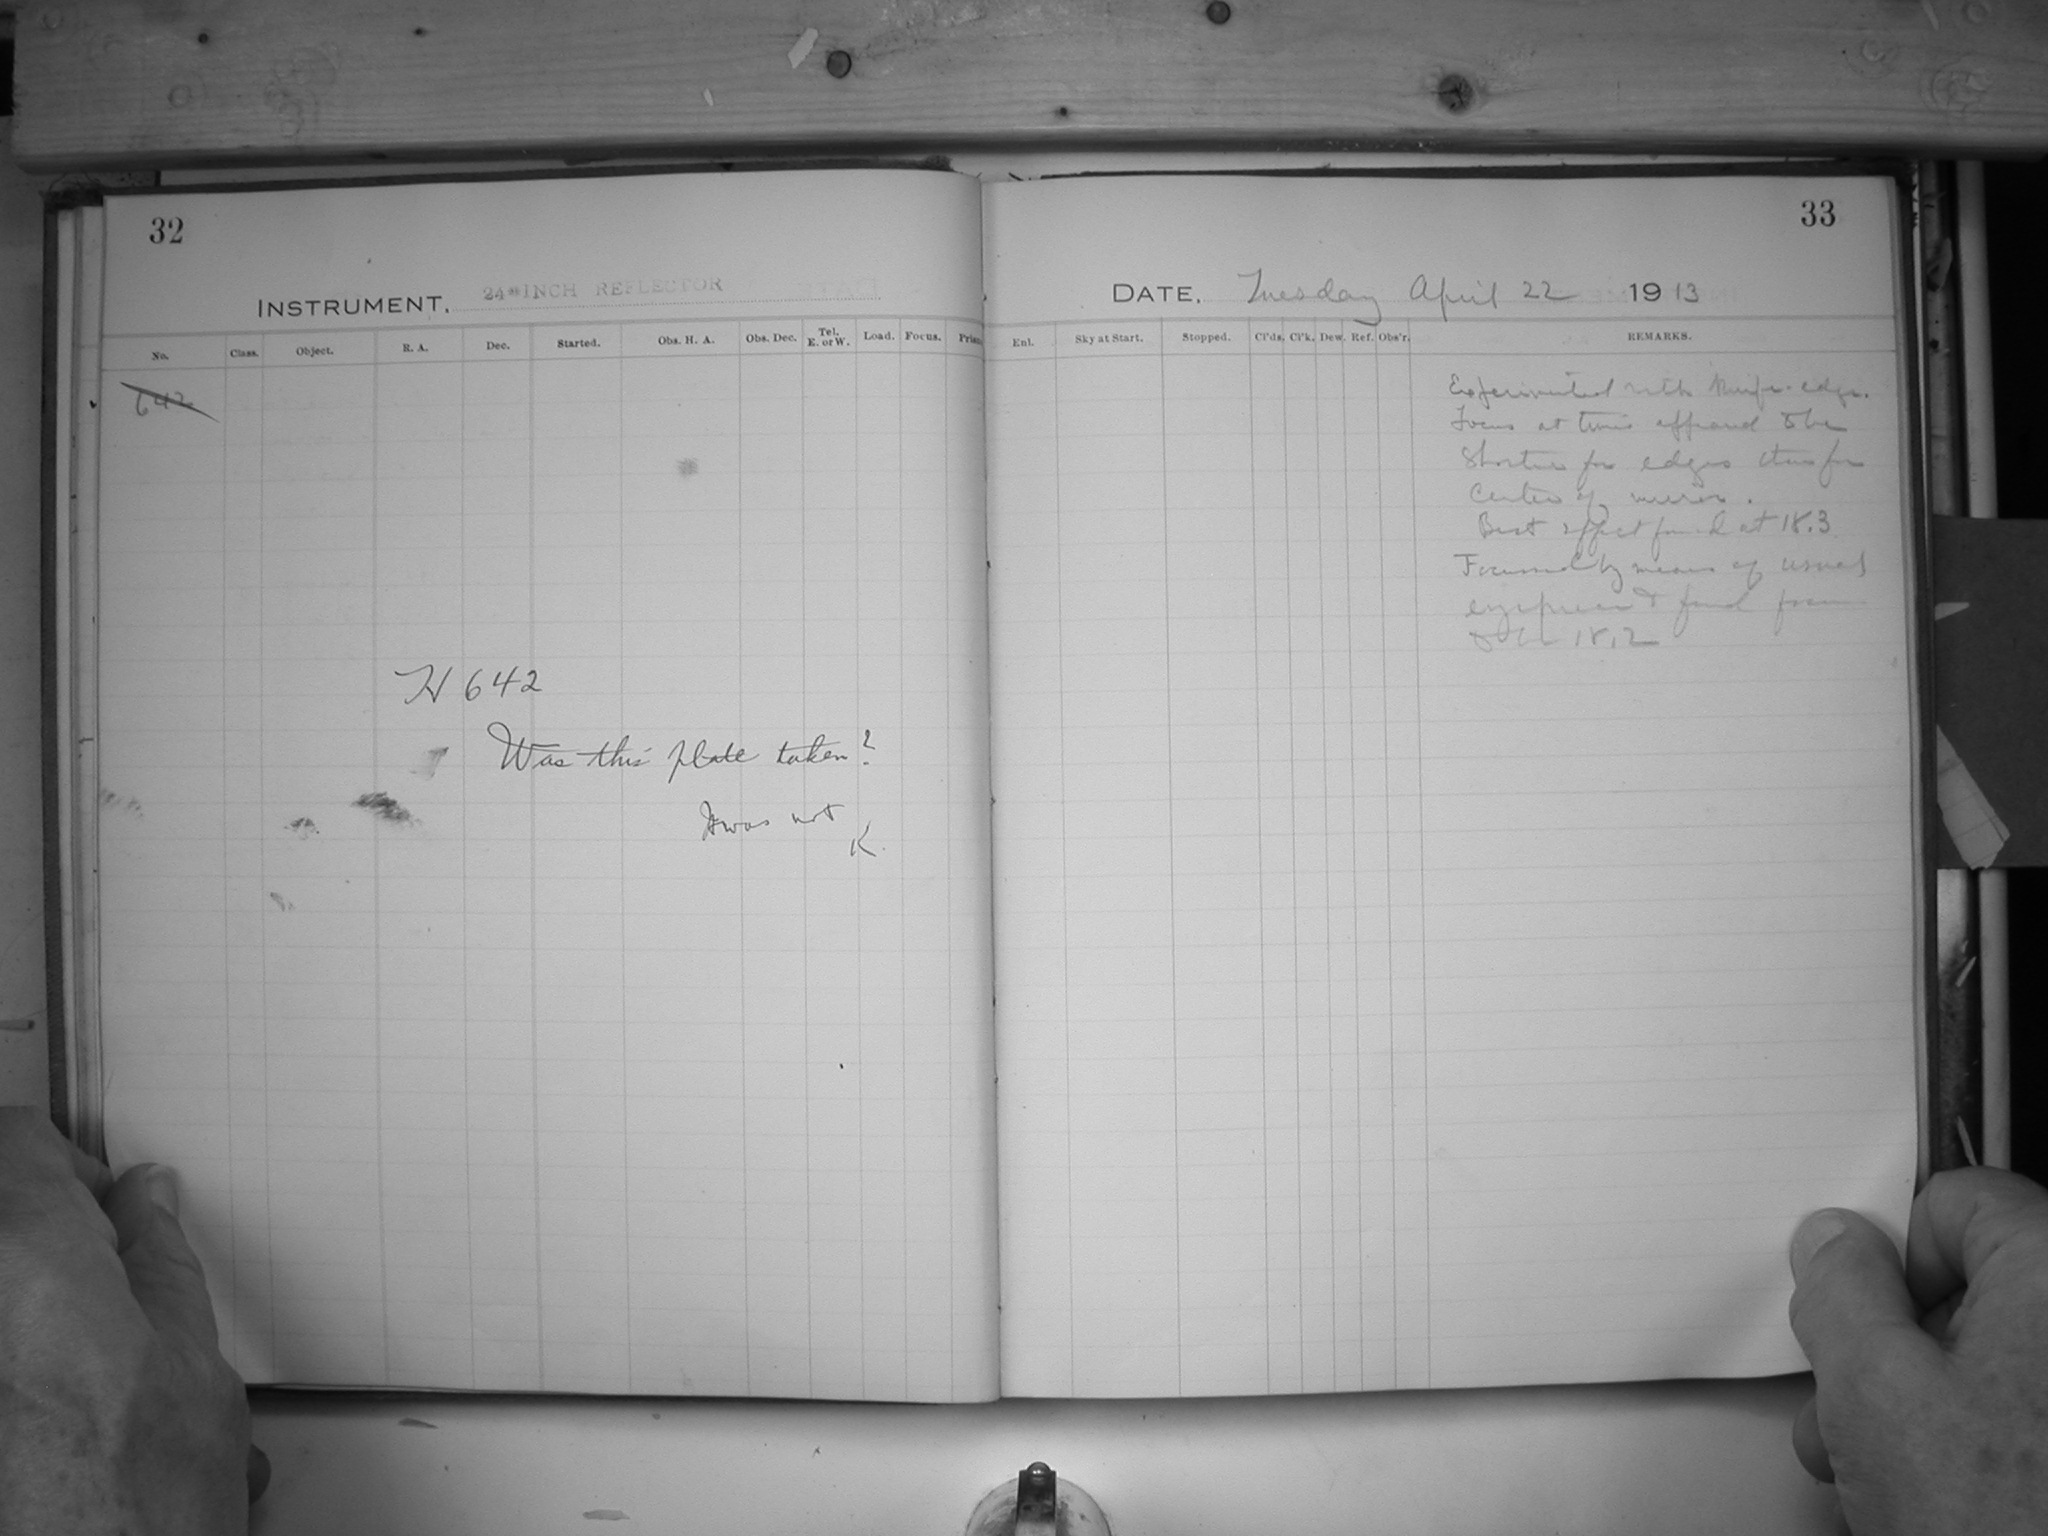 32
INSTRUMENT, 24-INCH REFLECTOR
No. Class. Object. R. A. Dec. Started. Obs. H. A. Obs. Dec. Tel. E. or W. Load. Focus. Prism
642
H 642
Was this plate taken?
It was not
K.
33
DATE, Tuesday April 22 1913
Enl. Sky at Start. Stopped. Cl'ds. Cl'k. Dew. Ref. Obs'r. REMARKS.
Experimented with knife-edge.
Focus at times appeared to be
shorter for edges than for
center of mirror.
Best effect found at 18.3
Focussed by means of usual
eyepiece & found focus
to be 18.2